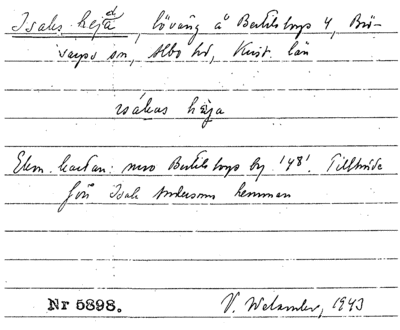 Isaks hejd, löväng å Bertilstorps 4, Brö-
sarps sn, Albo hd, Krist. län
isákas hɛja
Ekon. kartan: nära Bertilstorps by '48'. Tillhörde
förr Isak Anderssons hemman
Nr 5898.
V. Welander, 1943